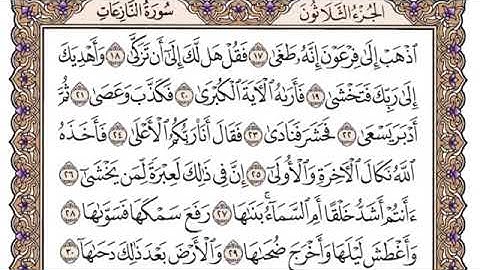 سُورَةُ النَّازِعَاتِ
الجُزْءُ الثَّلَاثُونَ
ٱذْهَبْ إِلَىٰ فِرْعَوْنَ إِنَّهُۥ طَغَىٰ ١٧ فَقُلْ هَل لَّكَ إِلَىٰٓ أَن تَزَكَّىٰ ١٨ وَأَهْدِيَكَ
إِلَىٰ رَبِّكَ فَتَخْشَىٰ ١٩ فَأَرَىٰهُ ٱلْءَايَةَ ٱلْكُبْرَىٰ ٢٠ فَكَذَّبَ وَعَصَىٰ ٢١ ثُمَّ
أَدْبَرَ يَسْعَىٰ ٢٢ فَحَشَرَ فَنَادَىٰ ٢٣ فَقَالَ أَنَا۠ رَبُّكُمُ ٱلْأَعْلَىٰ ٢٤ فَأَخَذَهُ
ٱللَّهُ نَكَالَ ٱلْءَاخِرَةِ وَٱلْأُولَىٰٓ ٢٥ إِنَّ فِي ذَٰلِكَ لَعِبْرَةً لِّمَن يَخْشَىٰٓ ٢٦
ءَأَنتُمْ أَشَدُّ خَلْقًا أَمِ ٱلسَّمَآءُ ۚ بَنَىٰهَا ٢٧ رَفَعَ سَمْكَهَا فَسَوَّىٰهَا ٢٨
وَأَغْطَشَ لَيْلَهَا وَأَخْرَجَ ضُحَىٰهَا ٢٩ وَٱلْأَرْضَ بَعْدَ ذَٰلِكَ دَحَىٰهَآ ٣٠